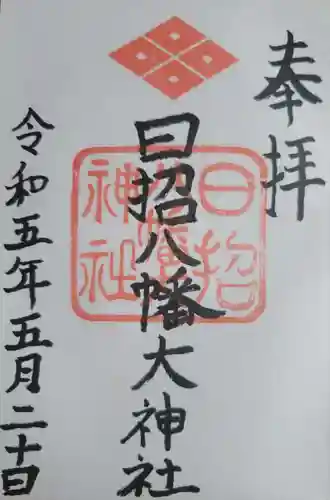 奉拝
日招八幡大神社
令和五年五月二十日
日招
八幡
神社